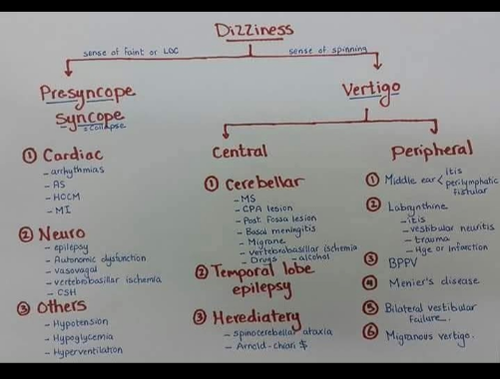 Dizziness
sense of faint or LOC
sense of spinning
Presyncope
syncope
±collapse
Vertigo
Central
Peripheral
① Cardiac
- arrhythmias
- AS
- HOCM
- MI
② Neuro
- epilepsy
- Autonomic dysfunction
- vasovagal
- vertebrobasillar ischemia
- CSH
③ Others
- Hypotension
- Hypoglycemia
- Hyperventilation
① Cerebellar
- MS
- CPA lesion
- Post. Fossa lesion
- Basal meningitis
- Migrane
- vertebrobasillar ischemia
- Drugs - alcohol
② Temporal lobe
epilepsy
③ Hereditary
- spinocerebellar ataxia
- Arnold-chiari $
① Middle ear < itis
perilymphatic
fistular
② Labrynthine
- itis
- vestibular neuritis
- trauma
- Hge or infarction
③ BPPV
④ Menier's disease
⑤ Bilateral vestibular
Failure.
⑥ Migranous vertigo.